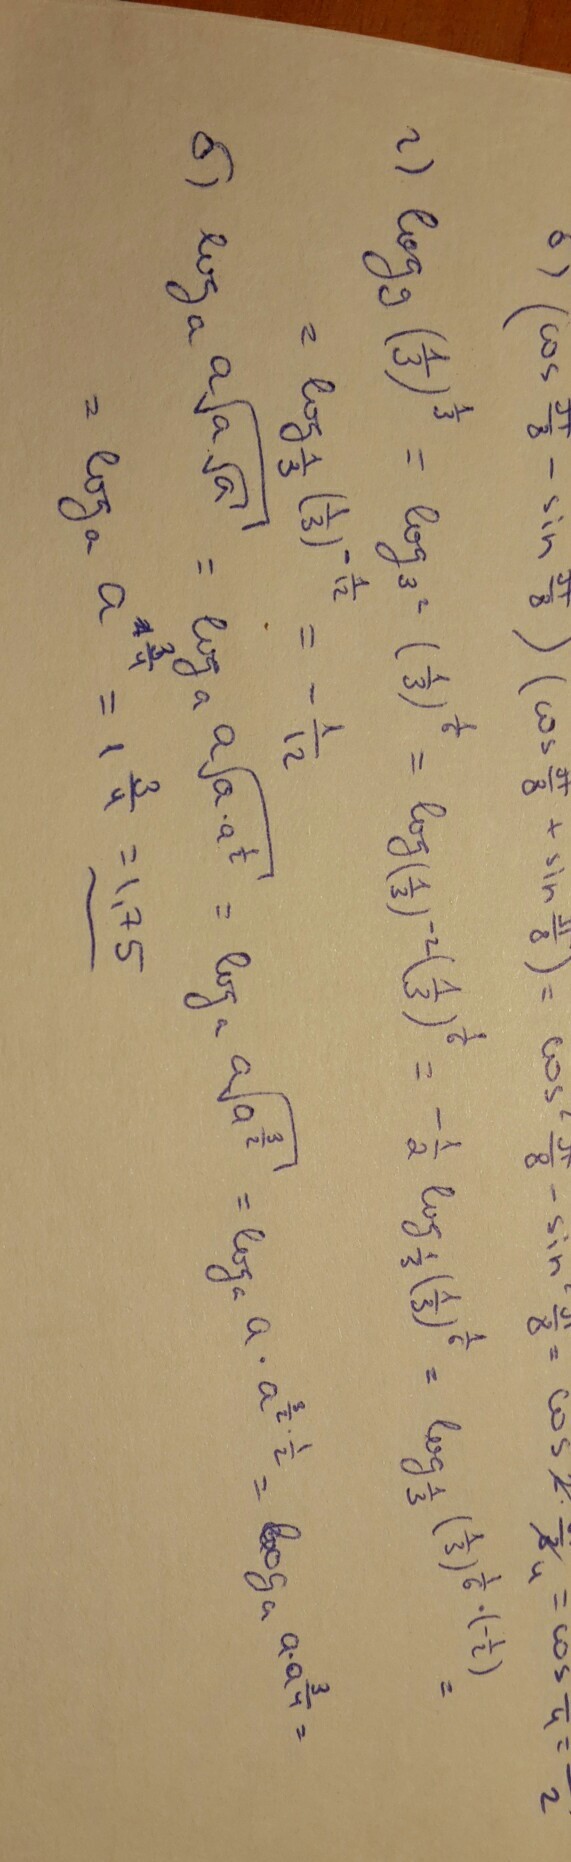 в) (cos π/8 - sin π/8) (cos π/8 + sin π/8) = cos² π/8 - sin² π/8 = cos 2·π/8 4 = cos π/4 = 2
г) log₉ (1/3)^(1/3) = log₃² (1/3)^(1/6) = log(1/3)⁻² (1/3)^(1/6) = -1/2 log_(1/3) (1/3)^(1/6) = log_(1/3) (1/3)^(1/6·(-1/2)) =
= log_(1/3) (1/3)^(-1/12) = -1/12
б) logₐ a√(a·√a) = logₐ a√(a·a^(1/2)) = logₐ a√(a^(3/2)) = logₐ a·a^(3/2·1/2) = logₐ a·a^(3/4) =
= logₐ a^(1 3/4) = 1 3/4 = 1,75